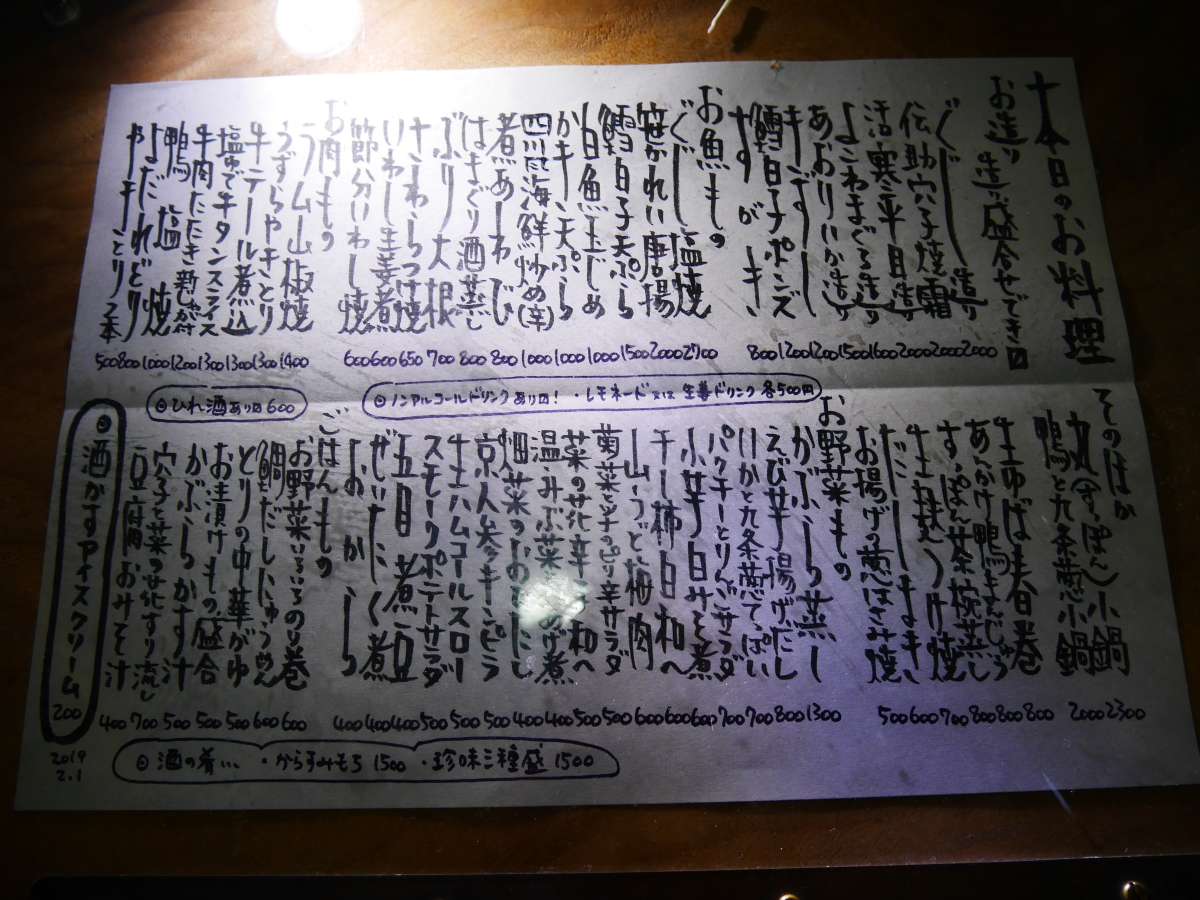 本日のお料理
お造り 造り盛合せでき〼
ぐじ造り 2000
伝助穴子焼霜 2000
活寒平目造り 2000
よこわまぐろ造り 1600
あおりいか造り 1500
きずし 1200
鱈白子ポンズ 1200
すがき 800
お魚もの
ぐじ塩焼 2700
笹がれい唐揚 2000
鱈白子天ぷら 1500
白魚玉じめ 1000
かき天ぷら 1000
四川風海鮮炒め(辛) 1000
煮あわび 800
はまぐり酒蒸し 800
ぶり大根 700
さわらつけ焼 650
いわし生姜煮 600
節分いわし焼 600
お肉もの
ラム山椒焼 1400
うずらやきとり 1300
牛テール煮込 1300
塩ゆで牛タンスライス 1300
牛肉たたき 1200
鴨塩焼 1000
よだれどり 800
やきとり2本 500
㋨ひれ酒あり〼 600
㋨ノンアルコールドリンクあり〼!・レモネード又は生姜ドリンク 各500円
そのほか
丸(すっぽん)小鍋 2300
鴨と九条葱小鍋 2000
生ゆば春巻 800
あんかけ鴨まんじゅう 800
すっぽん茶碗蒸し 800
生麸つけ焼 700
だしまき 600
お揚げの葱はさみ焼 500
お野菜もの
かぶら蒸し 1300
えび芋揚げだし 800
いかと九条葱てっぱい 700
パクチーとりんごサラダ 700
小芋白みそ煮 600
干し柿白和へ 600
山うど梅肉 600
菊菜と芋のピリ辛サラダ 500
菜の花辛子和へ 500
温みぶ菜とお揚げ煮 400
畑菜のおひたし 400
京人参キンピラ 500
生ハムコールスロー 500
スモークポテトサラダ 500
五目煮豆 400
ぜいたく煮 400
おから 400
ごはんもの
お野菜いろいろのり巻 600
鯛だしにゅうめん 600
とりの中華がゆ 500
お漬けもの盛合 500
かぶらかす汁 500
穴子と菜の花すり流し 700
豆腐おみそ汁 400
㋨酒かすアイスクリーム 200
㋨酒の肴… ・からすみもち 1500 ・珍味三種盛 1500
2019
2.1